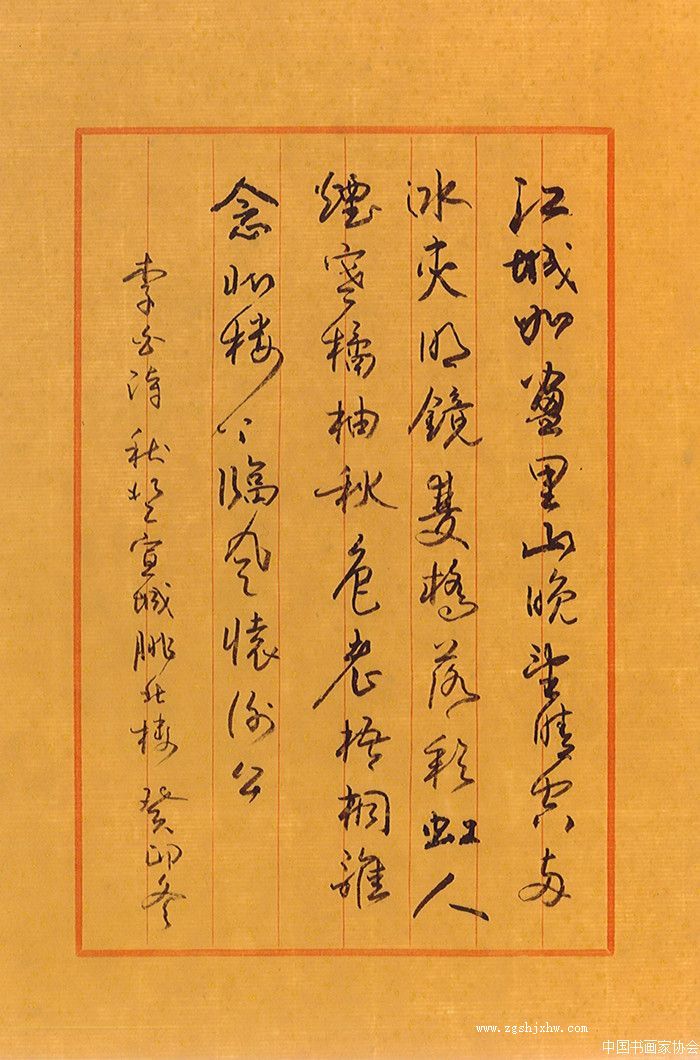 江城如畫里山晚望晴空兩
水夾明鏡雙橋落彩虹人
煙寒橘柚秋色老梧桐誰
念北楼上臨風懷謝公
李白詩 秋登宣城朓北楼 癸卯冬
www.zgshjxhw.com
中国书画家协会